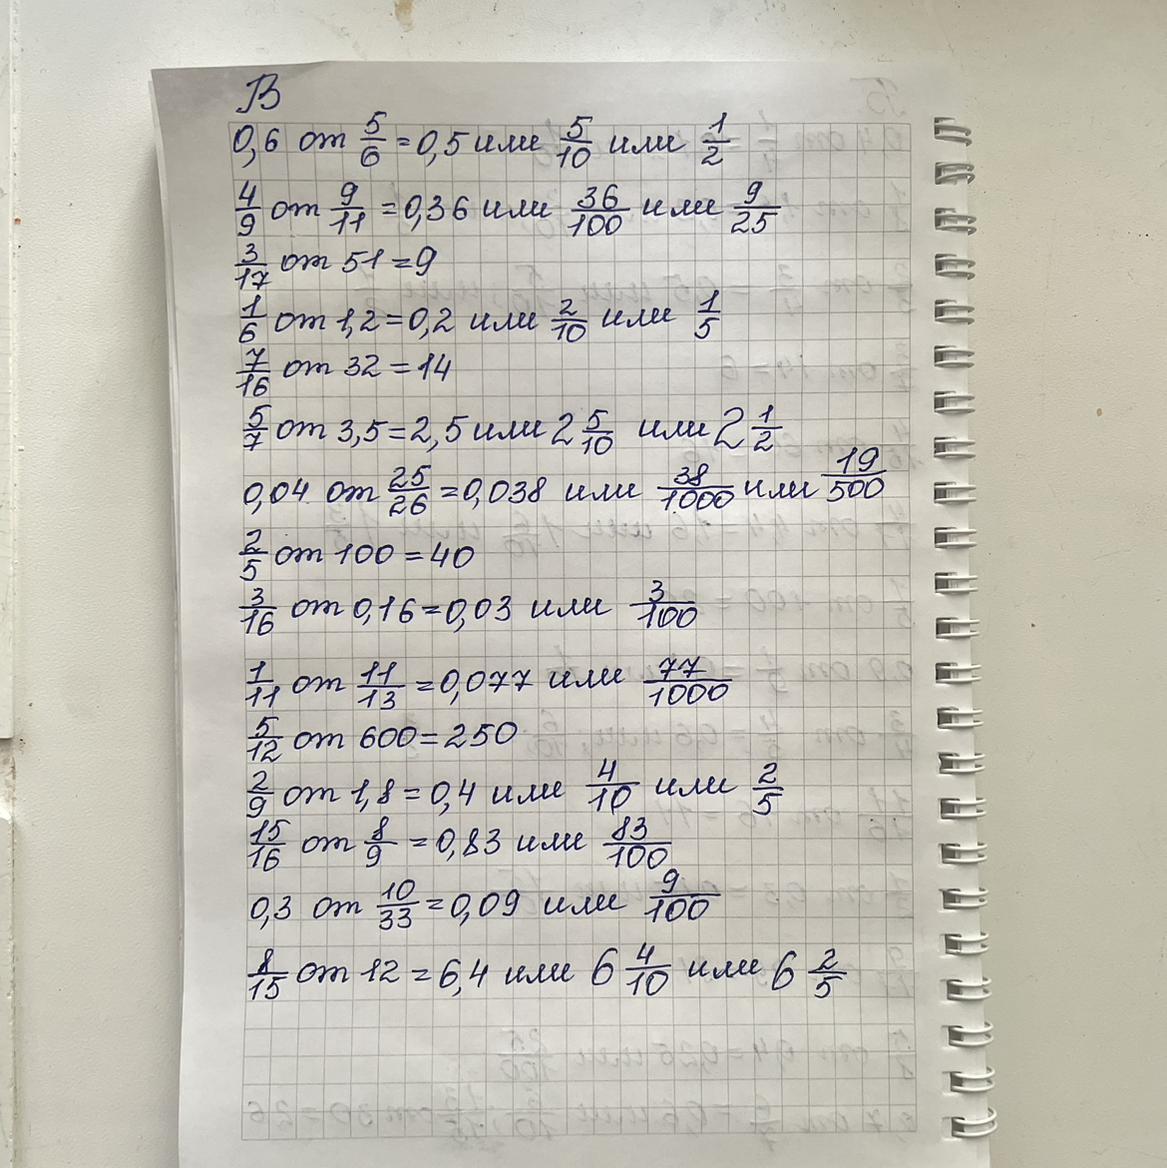 В
0,6 от 5/6 = 0,5 или 5/10 или 1/2
4/9 от 9/11 = 0,36 или 36/100 или 9/25
3/17 от 51 = 9
1/6 от 1,2 = 0,2 или 2/10 или 1/5
7/16 от 32 = 14
5/7 от 3,5 = 2,5 или 2 5/10 или 2 1/2
0,04 от 25/26 = 0,038 или 38/1000 или 19/500
2/5 от 100 = 40
3/16 от 0,16 = 0,03 или 3/100
1/11 от 11/13 = 0,077 или 77/1000
5/12 от 600 = 250
2/9 от 1,8 = 0,4 или 4/10 или 2/5
15/16 от 8/9 = 0,83 или 83/100
0,3 от 10/33 = 0,09 или 9/100
8/15 от 12 = 6,4 или 6 4/10 или 6 2/5